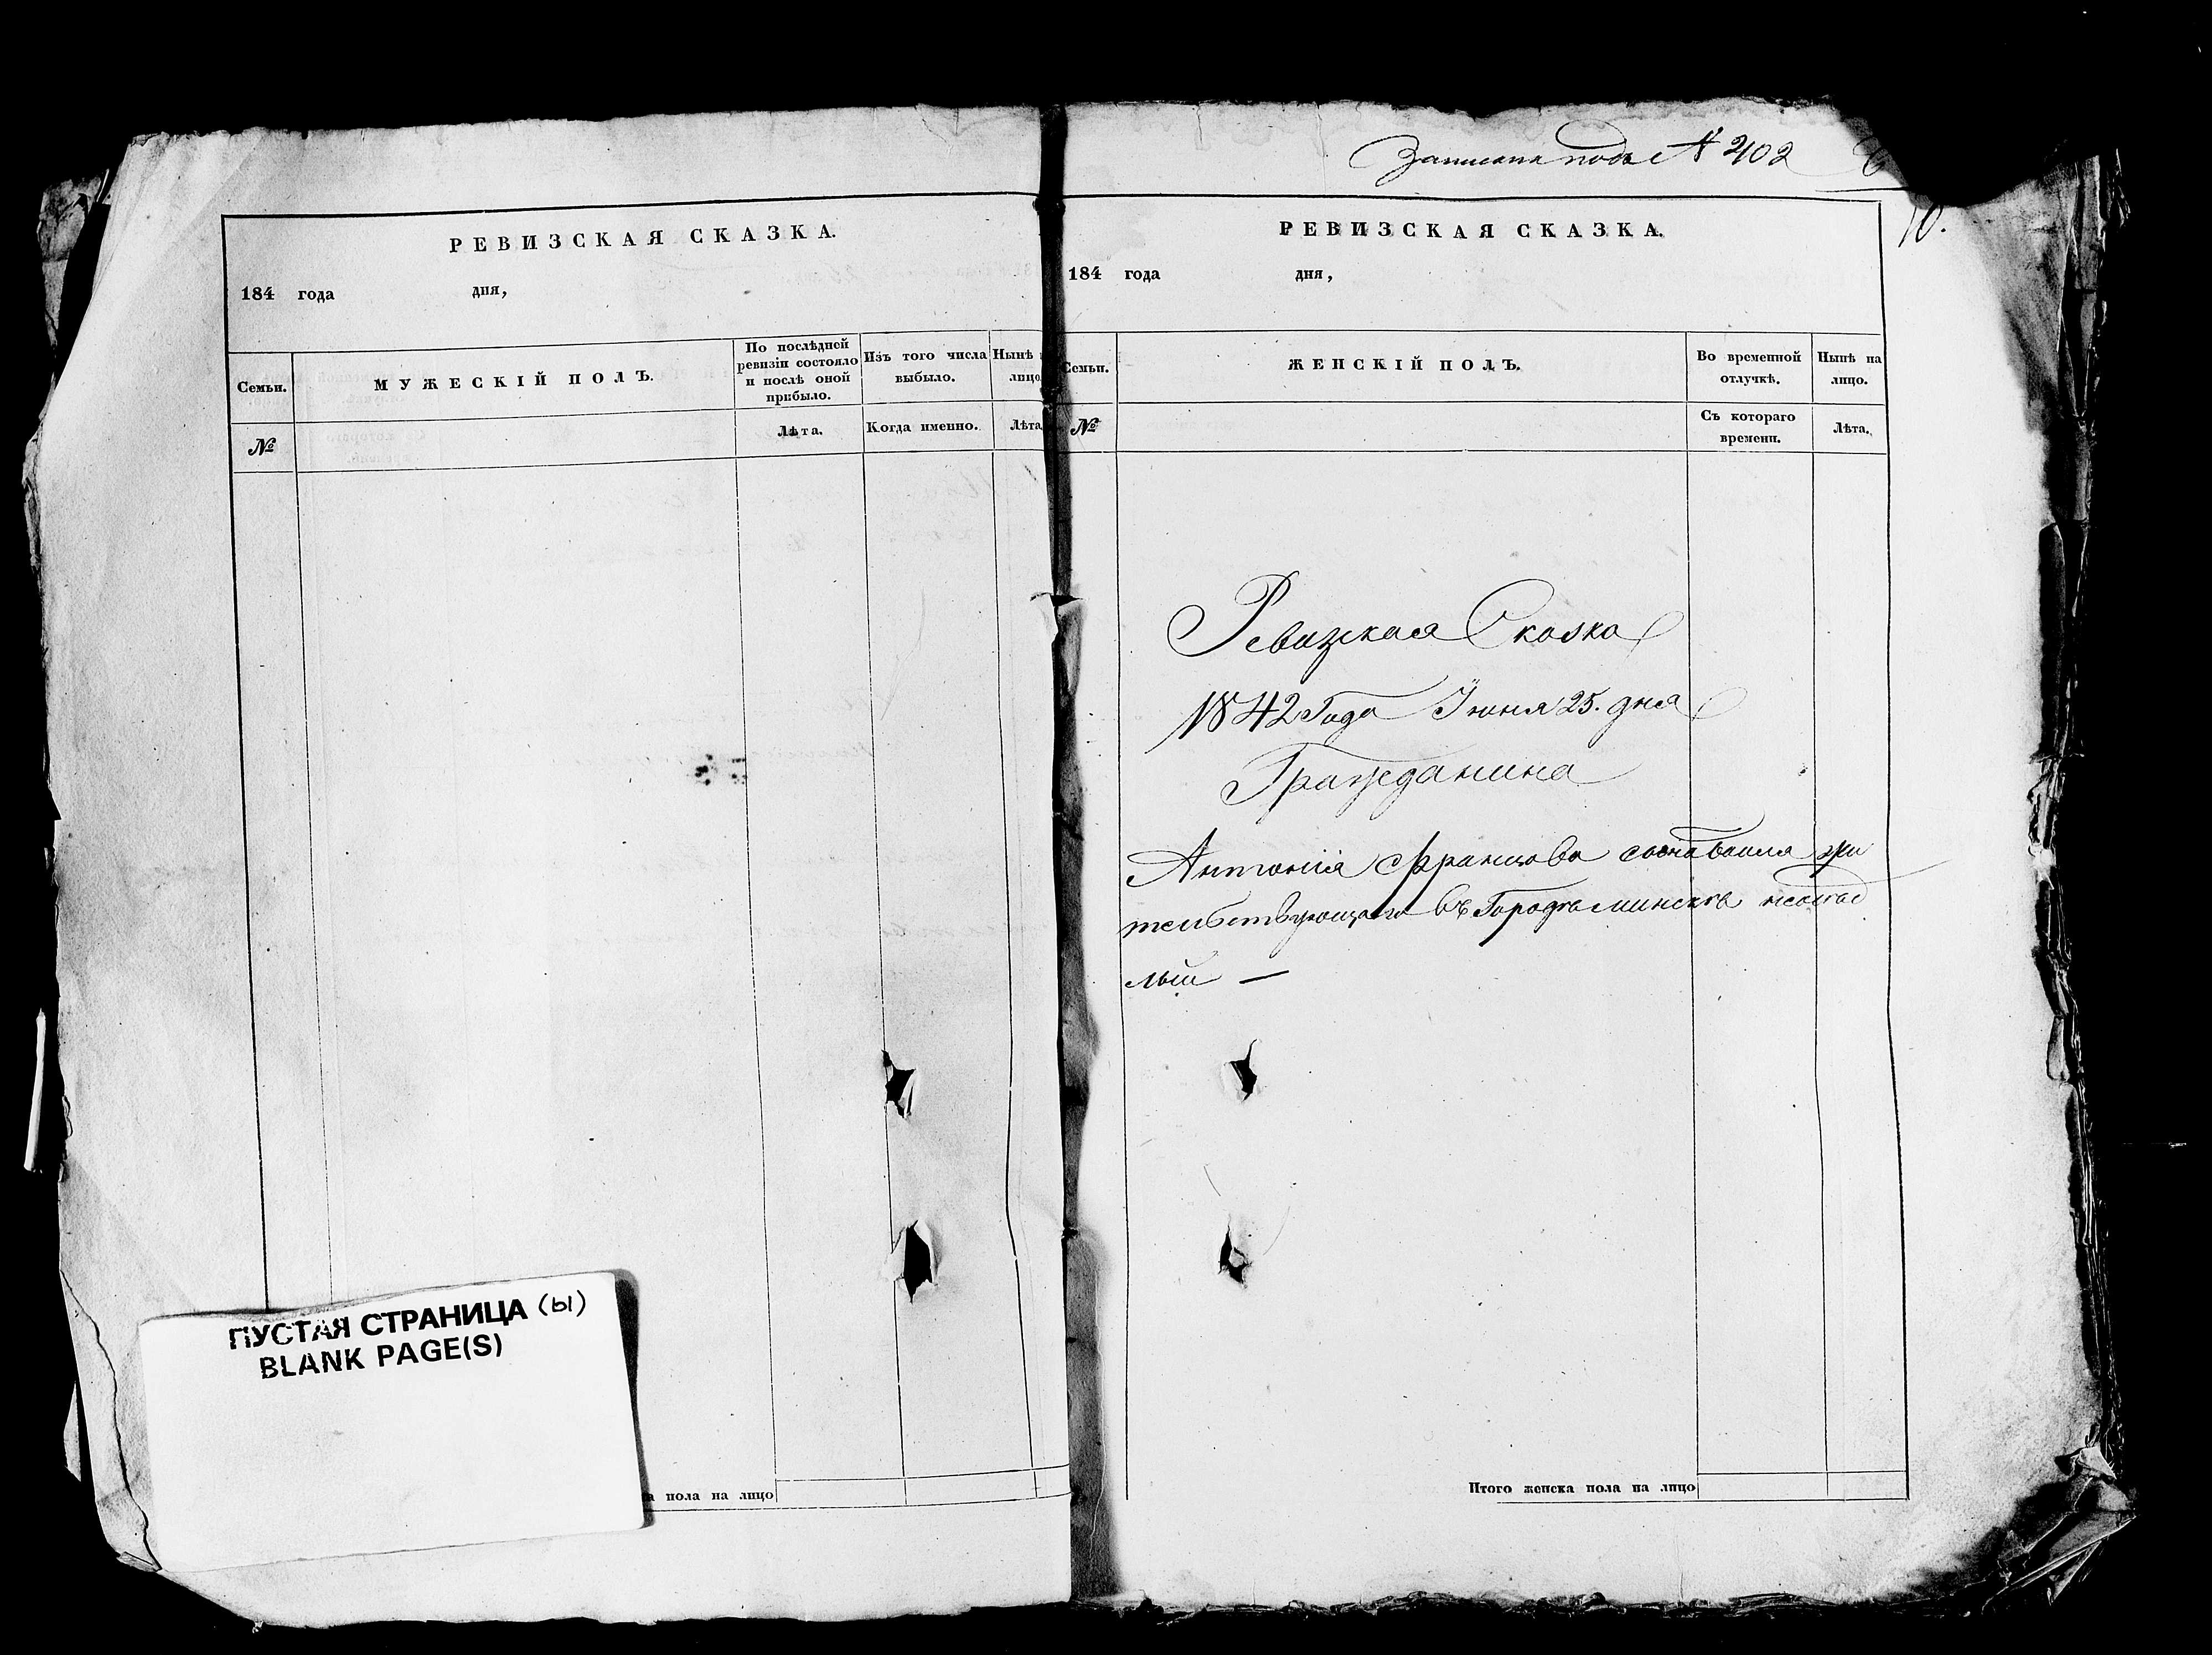 РЕВИЗСКАЯ СКАЗКА.
184 года дня,
Семьи.
МУЖЕСКІЙ ПОЛЪ.
По послѣдней ревизіи состояло и послѣ оной прибыло.
Изъ того числа выбыло.
Нынѣ
лицо
№
Лѣта.
Когда именно.
Лѣта
ПУСТАЯ СТРАНИЦА (Ы)
BLANK PAGE(S)
пола на лицо
Записана подъ № 202
10.
РЕВИЗСКАЯ СКАЗКА.
184 года дня,
Семьи.
ЖЕНСКІЙ ПОЛЪ.
Во временной отлучкѣ.
Нынѣ на лицо.
№
Съ котораго времени.
Лѣта.
Ревизкая Сказка
1842 Года Іюня 25. дня
Гражданина
Антонія Францова жи
тельствующаго въ Городѣ Минскѣ
Итого женска пола на лицо